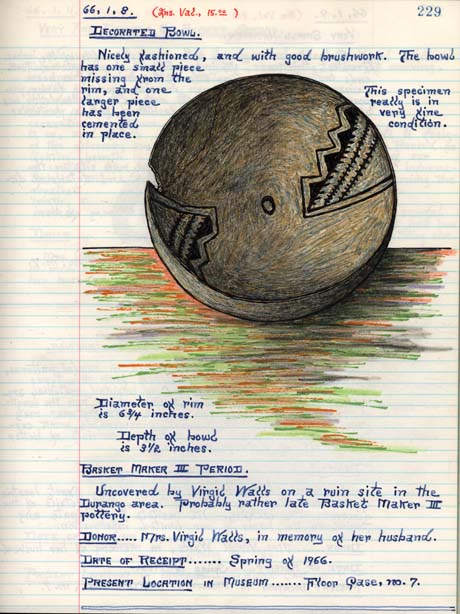 66, 1, 8. (Ins. Val., 15.00)
229
Decorated Bowl.
Nicely fashioned, and with good brushwork. The bowl
has one small piece
missing from the
rim, and one
larger piece
has been
cemented
in place.
This specimen
really is in
very fine
condition.
Diameter of rim
is 6 3/4 inches.
Depth of bowl
is 3 1/2 inches.
Basket Maker III Period.
Uncovered by Virgil Walls on a ruin site in the
Durango area. Probably rather late Basket Maker III
pottery.
Donor..... Mrs. Virgil Walls, in memory of her husband.
Date of Receipt....... Spring of 1966.
Present Location in Museum....... Floor Case, no. 7.